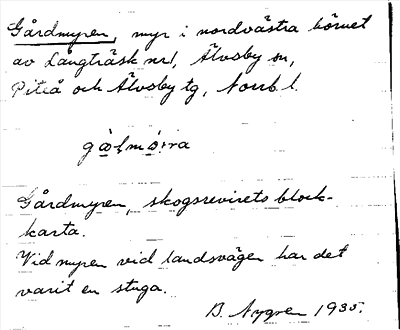 Gårdmyren, myr i nordvästra hörnet
av Långträsk nr 1, Älvsby sn,
Piteå och Älvsby tg, Norrb l.
Gårdmyren, skogsrevirets block-
karta.
Vid myren vid landsvägen har det
varit en stuga.
B. Nygren 1935.